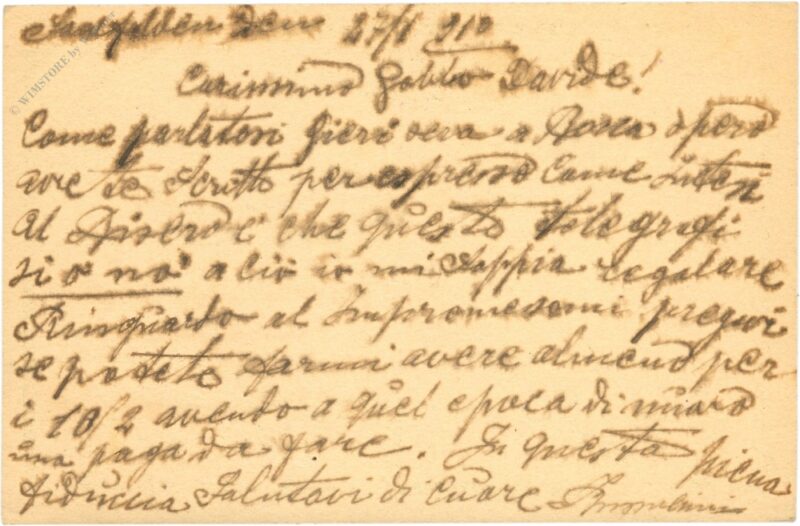 Saalfelden den 27/1 910
Carissimo Gobbo Davide!
Come parlatovi jieri seva a Bocca o però
avete scritto per espresso come intesi
al Disero e che questo telegrafi
si o no a ciò io mi sappia regolare
Rinquardo al pregovi
se potete farmi avere almeno per
i 10/2 avendo a quel epoca di nuovo
una paga da fare. In questa piena
fiduccia Salutovi di cuore
© WIMSTORE by